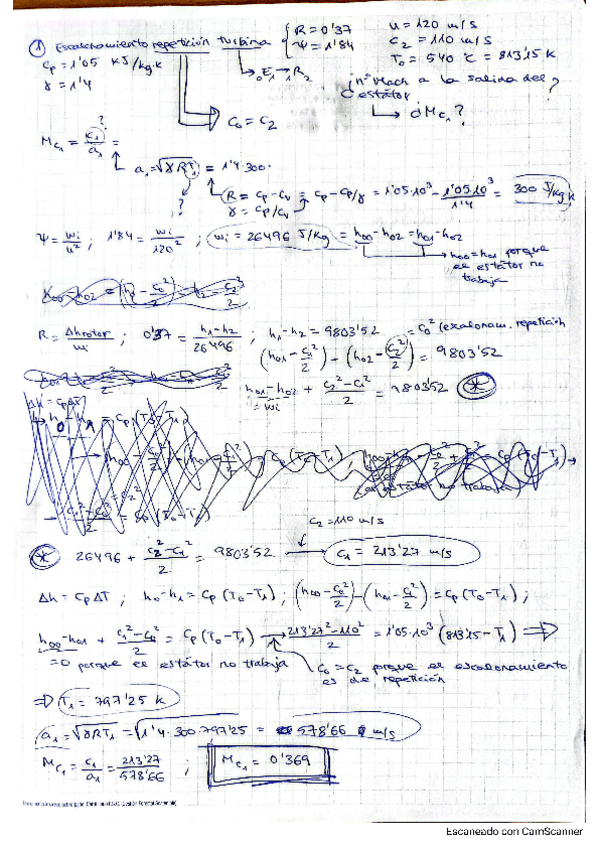 ① Escalonamiento repetición turbina { R=0'37 Ψ=1'84
u = 120 m/s
c₂ = 110 m/s
T₀ = 540 ºC = 813'15 K
cp = 1'05 KJ/kg·K
γ = 1'4
¿nº Mach a la salida del estátor?
c₀ = c₂
¿Mc₁?
Mc₁ = c₁/a₁ =
a₁ = √γRT₁ = 1'4·300·
R = cp - cv = cp - cp/γ = 1'05·10³ - 1'05·10³/1'4 = 300 J/kg K
γ = cp/cv
Ψ = wi/u² ; 1'84 = wi/120² ; wi = 26496 J/kg = h₀₀ - h₀₂ = h₀₁ - h₀₂
h₀₀ = h₀₁ porque el estátor no trabaja
R = Δhrotor/wi ; 0'37 = h₁-h₂/26496 ; h₁-h₂ = 9803'52
= c₀² (escalonam. repetición
(h₀₁ - c₁²/2) - (h₀₂ - c₂²/2) = 9803'52
h₀₁ - h₀₂ + c₂²-c₁²/2 = 9803'52 ✱
= wi
Δh = cpΔT
✱ 26496 + c₂²-c₁²/2 = 9803'52
c₂ = 110 m/s
c₁ = 213'27 m/s
Δh = cpΔT ; h₀-h₁ = cp (T₀-T₁) ; (h₀₀ - c₀²/2) - (h₀₁ - c₁²/2) = cp (T₀-T₁) ;
h₀₀-h₀₁ + c₁²-c₀²/2 = cp (T₀-T₁) → 213'27²-110²/2 = 1'05·10³ (813'15-T₁) ⇒
=0 porque el estátor no trabaja
c₀ = c₂ porque el escalonamiento es de repetición
⇒ T₁ = 797'25 K
a₁ = √γRT₁ = √1'4·300·797'25 = 578'66 m/s
Mc₁ = c₁/a₁ = 213'27/578'66 ; Mc₁ = 0'369
Escaneado con CamScanner